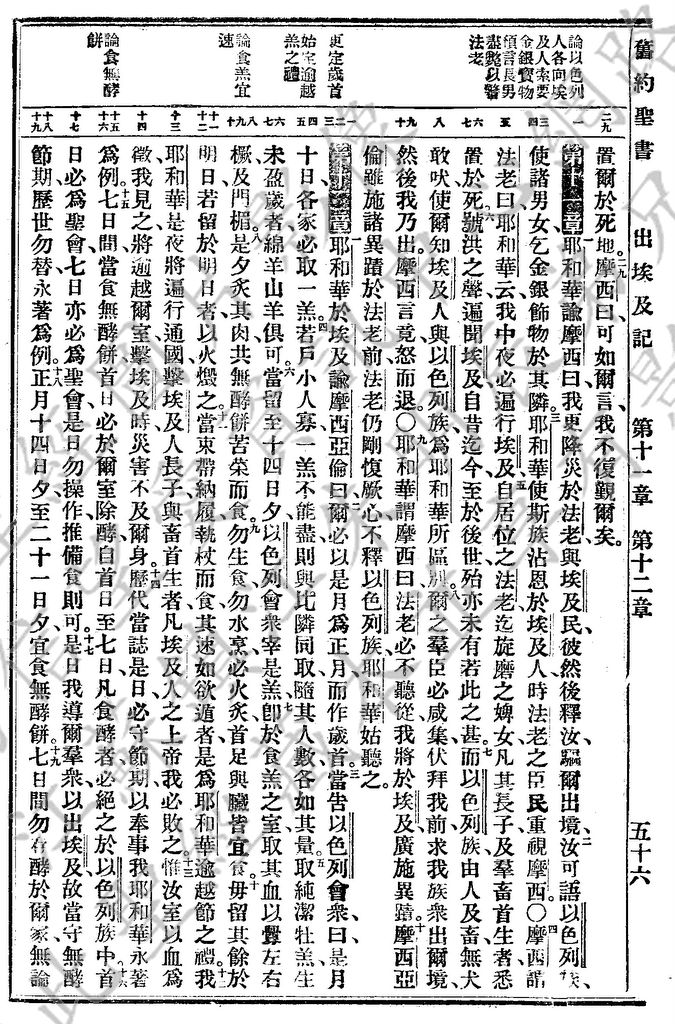 舊約聖書 出埃及記 第十一章 第十二章 五十六
論以色列
人各向埃
及人索要
金銀寶物
預言長男
盡斃以警
法老
更定歲首
始定逾越
羔之禮
論食羔宜
速
論食無酵
餅
置爾於死地二九摩西曰可如爾言我不復覿爾矣
第十一章一耶和華諭摩西曰我更降災於法老與埃及民彼然後釋汝驅爾出境二汝可語以色列族
使諸男女乞金銀飾物於其隣三耶和華使斯族沾恩於埃及人時法老之臣民重視摩西〇四摩西謂
法老曰耶和華云我中夜必遍行埃及五自居位之法老迄旋磨之婢女凡其長子及羣畜首生者悉
置於死六號洪之聲遍聞埃及自昔迄今至於後世殆亦未有若此之甚七而以色列族由人及畜無犬
敢吠使爾知埃及人與以色列族為耶和華所區別八爾之羣臣必咸集伏拜我前求我族衆出爾境
然後我乃出摩西言竟怒而退〇九耶和華謂摩西曰法老必不聽從我將於埃及廣施異蹟十摩西亞
倫雖施諸異蹟於法老前法老仍剛愎厥心不釋以色列族耶和華姑聽之
第十二章一耶和華於埃及諭摩西亞倫曰二爾必以是月為正月而作歲首三當告以色列會衆曰是月
十日各家必取一羔四若戶小人寡一羔不能盡則與比隣同取隨其人數各如其量五取純潔牡羔生
未盈歲者綿羊山羊俱可六當留至十四日夕以色列會衆宰是羔七卽於食羔之室取其血以釁左右
橛及門楣八是夕炙其肉共無酵餅苦菜而食九勿生食勿水烹必火炙首足與臟皆宜食十毋留其餘於
明日若留於明日者以火燬之十一當束帶納履執杖而食其速如欲遁者是為耶和華逾越節之禮十二我
耶和華是夜將遍行通國擊埃及人長子與畜首生者凡埃及人之上帝我必敗之十三惟汝室以血為
徵我見之將逾越爾室擊埃及時災害不及爾身十四歷代當誌是日必守節期以奉事我耶和華永著
為例十五七日間當食無酵餅首日必於爾室除酵自首日至七日凡食酵者必絕之於以色列族中十六首
日必為聖會七日亦必為聖會是日勿操作推備食則可十七是日我導爾羣衆以出埃及故當守無酵
節期歷世勿替永著為例十八正月十四日夕至二十一日夕宜食無酵餅十九七日間勿存酵於爾家無論